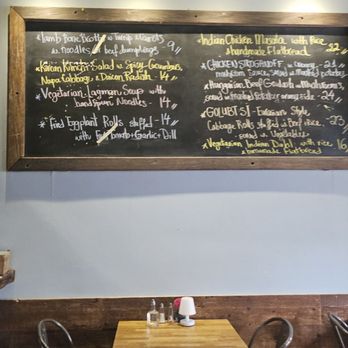 Lamb Bone Broth w/
w/ noodles & beef dumplings - 9
Salad w/ Spicy Cucumbers,
Napa Cabbage & Daicon Radish - 14
* Vegetarian Lagman Soup with
handspun Noodles - 14
* Fried Eggplant Rolls stuffed - 14
with Tomato + Garlic + Dill
* Indian Chicken Masala with Rice
& handmade Flatbread 22
* CHICKEN STROGANOFF w/
mushroom Sauce, salad w/ mashed potatoes
* Hungarian Beef Goulash w/ Mushrooms,
salad w/ mashed potatoes - 24
* GOLUBTSI - Eurasian Style
Cabbage Rolls stuffed w/ Beef + Rice - 23
salad w/ Vegetables
* Vegetarian Indian Dahl with rice 16
& homemade Flatbread